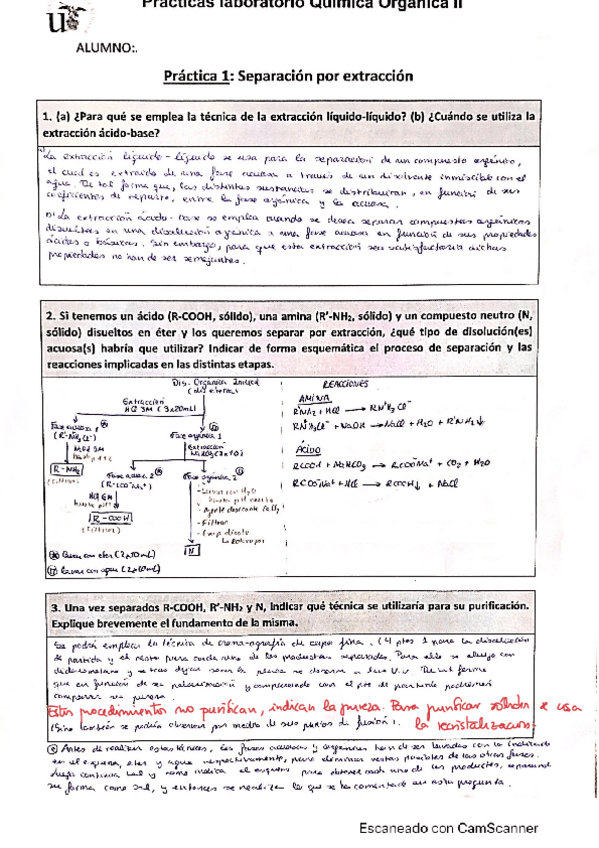 Prácticas laboratorio Química Orgánica II
ALUMNO:.
Práctica 1: Separación por extracción
1. (a) ¿Para qué se emplea la técnica de la extracción líquido-líquido? (b) ¿Cuándo se utiliza la
extracción ácido-base?
La extracción líquido-líquido se usa para la separación de un compuesto orgánico,
el cual es extraído de una fase acuosa a través de un disolvente inmiscible con el
agua. De tal forma que, las distintas sustancias se distribuirán, en función de sus
coeficientes de reparto, entre la fase orgánica y la acuosa.
b) La extracción ácido-base se emplea cuando se desea separar compuestos orgánicos
disueltos en una disolución orgánica a una fase acuosa en función de sus propiedades
ácidas o básicas. Sin embargo, para que esta extracción sea satisfactoria dichas
propiedades no han de ser semejantes.
2. Si tenemos un ácido (R-COOH, sólido), una amina (R'-NH₂, sólido) y un compuesto neutro (N,
sólido) disueltos en éter y los queremos separar por extracción, ¿qué tipo de disolución(es)
acuosa(s) habría que utilizar? Indicar de forma esquemática el proceso de separación y las
reacciones implicadas en las distintas etapas.
Dis. Orgánica Inicial
Extracción
HCl 3M (3x20mL)
Fase acuosa 1
Fase orgánica 1
Extracción
R-NH₂
Fase acuosa 2
Fase orgánica 2
HCl 6M
R-COOH
- Lavar con H₂O
- Agente desecante
- Filtrar
N
Lavar con éter (2x10mL)
Lavar con agua (2x10mL)
REACCIONES
AMINA
R'NH₂ + HCl → R'NH₃Cl⁻
R'NH₃Cl⁻ + NaOH → NaCl + H₂O + R'NH₂↓
ÁCIDO
RCOOH + NaHCO₃ → RCOO⁻Na⁺ + CO₂ + H₂O
RCOO⁻Na⁺ + HCl → RCOOH↓ + NaCl
3. Una vez separados R-COOH, R'-NH₂ y N, indicar qué técnica se utilizaría para su purificación.
Explique brevemente el fundamento de la misma.
Se podrá emplear la técnica de cromatografía de capa fina. (4 ptos 1 para la disolución
de partida y el resto para cada uno de los productos separados. Para ello se eluye con
diclorometano y se
que en función de su polaridad y comparando con el pto de partida podremos
comparar su pureza
Estos procedimientos no purifican, indican la pureza. Para purificar sólidos se usa
la recristalización.
Sino también se podría observar por medio de sus puntos de fusión.
Antes de realizar estas técnicas, las fases acuosas y orgánicas han de ser lavadas con lo indicado
en el esquema, éter y agua respectivamente, para eliminar restos posibles de las otras fases.
para obtener cada uno de los productos,
su forma como sal, y entonces se realiza lo que se ha comentado en esta pregunta.
Escaneado con CamScanner